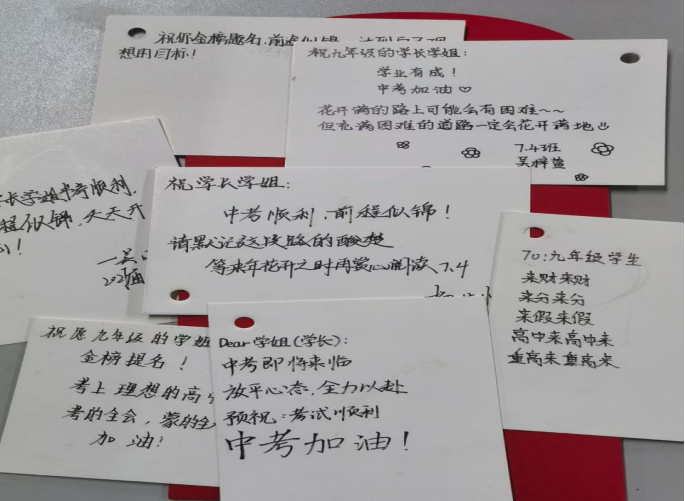 祝你金榜题名,前途似锦,达到自己理
想的目标!
祝九年级的学长学姐:
学业有成!
中考加油♡
花开满的路上可能会有困难~~
但充满困难的道路一定会花开满地
7.4班
吴梓萱
长学姐中考顺利,
程似锦,天天开
心!
祝学长学姐:
中考顺利,前程似锦!
请默记这段路的酸楚
等来年花开之时再赏心阅读 7.4
To:九年级学生
来财来财
来分来分
来假来假
高中来高中来
重高来重高来
祝愿九年级的学姐
金榜提名!
考上理想的高
考的全会,蒙的全
加油!
Dear学姐(学长):
中考即将来临
放平心态,全力以赴
预祝:考试顺利
中考加油!